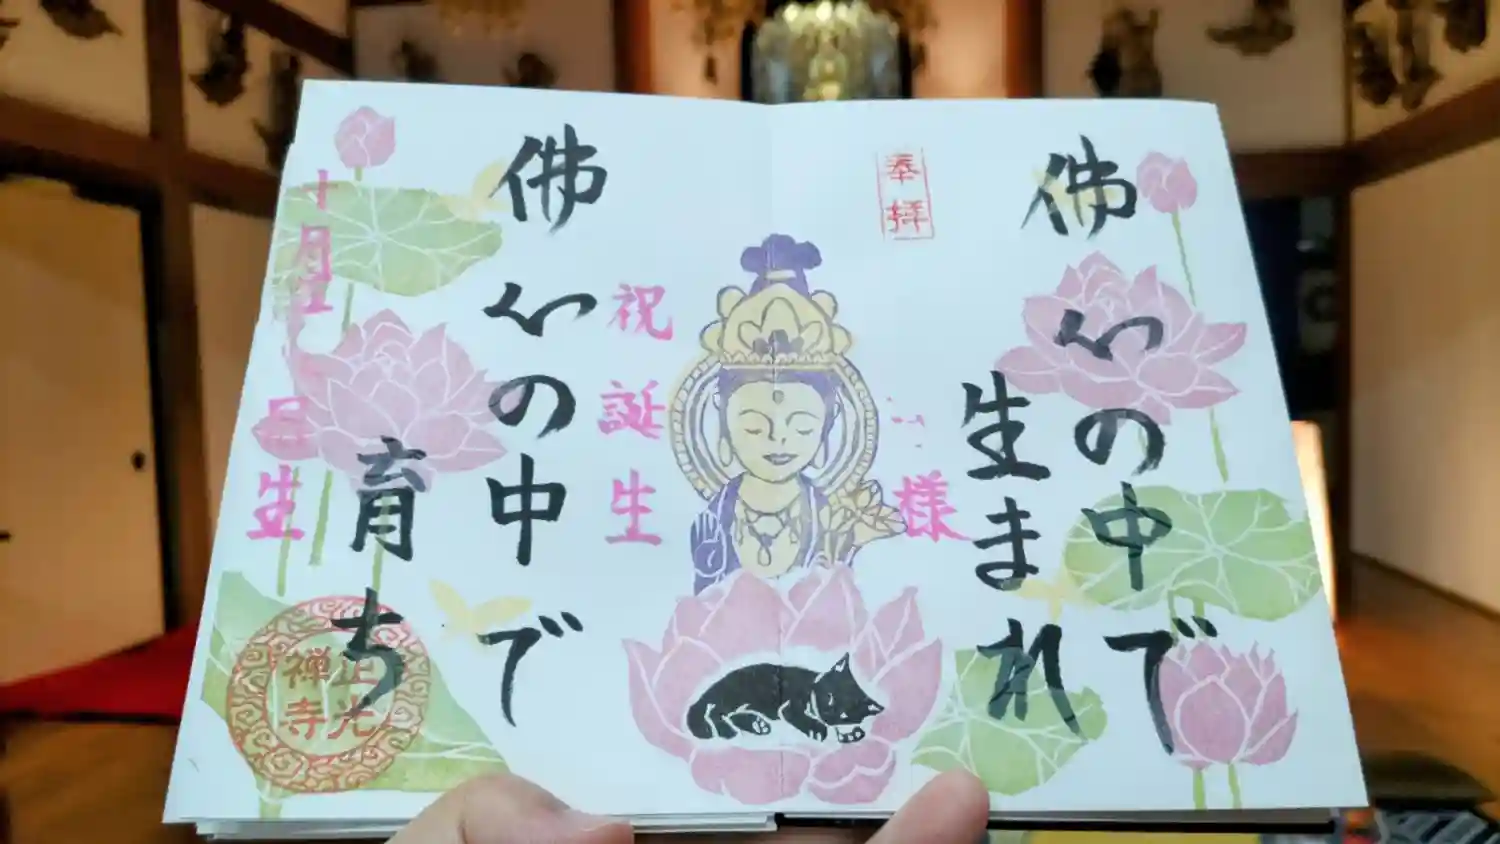 佛心の中で
生まれ
奉拝
様
祝誕生
佛心の中で
育ち
十月
日生
正光
禅寺